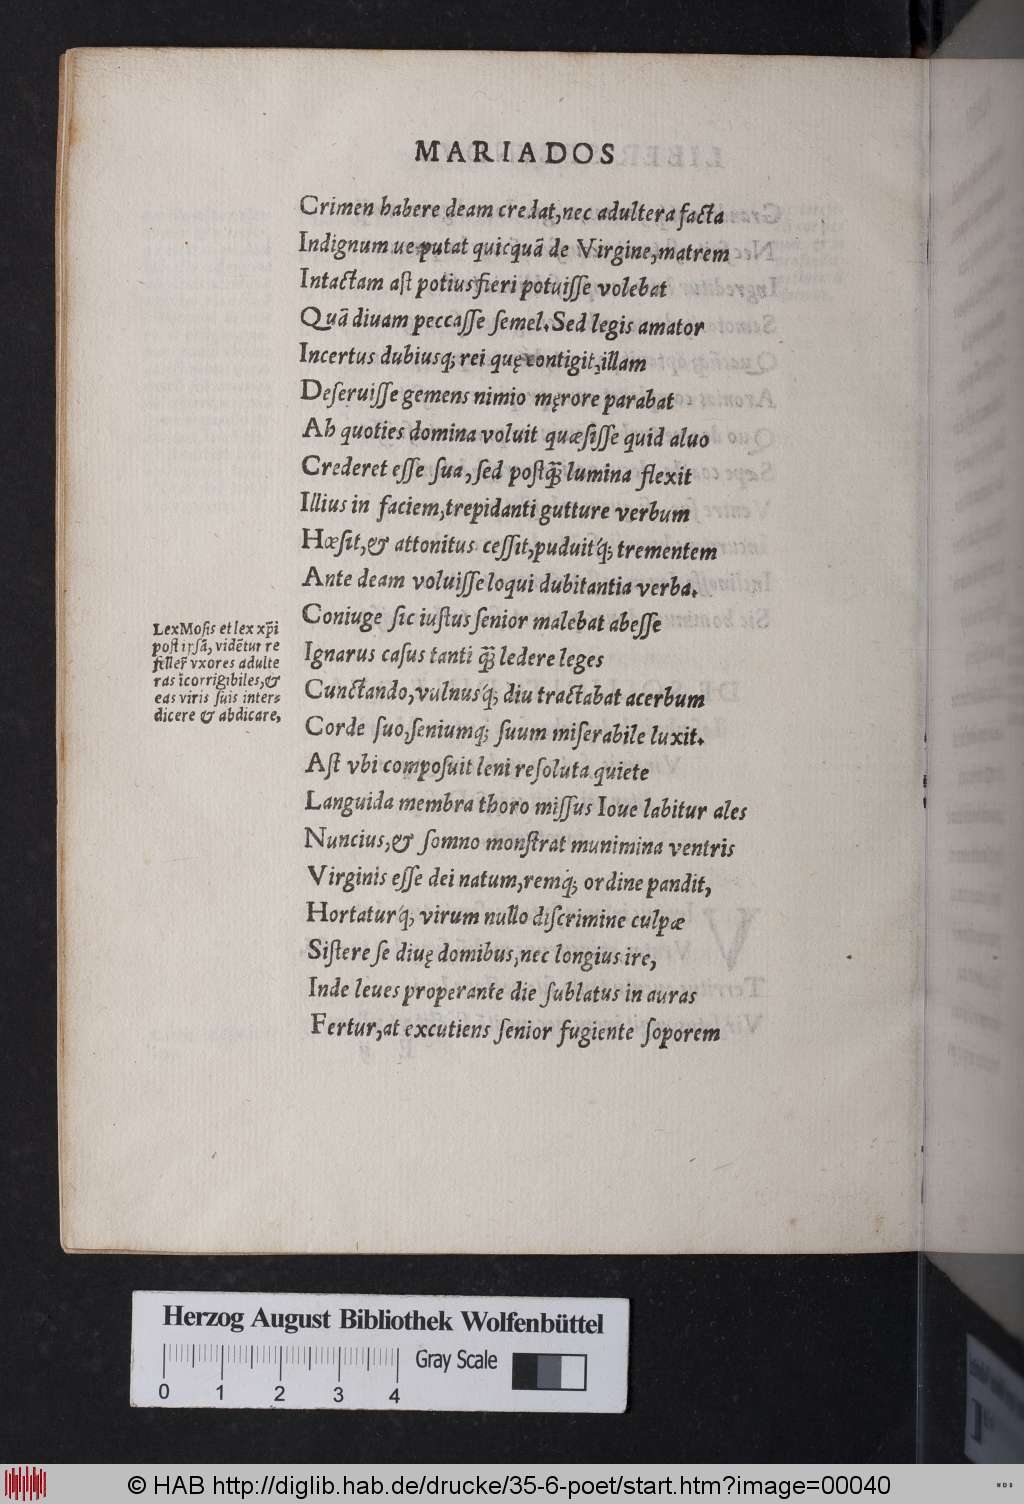 MARIADOS
Crimen habere deam credat,nec adultera facta
Indignum ue putat quicquā de Virgine,matrem
Intactam aſt potius fieri potuiſſe volebat
Quā diuam peccaſſe ſemel.Sed legis amator
Incertus dubiusq; rei quę contigit,illam
Deſeruiſſe gemens nimio męrore parabat
Ah quoties domina voluit quæſiſſe quid aluo
Crederet eſſe ſua, ſed poſtq̃ lumina flexit
Illius in faciem,trepidanti gutture verbum
Hæſit,& attonitus ceſſit,puduitq́; trementem
Ante deam voluiſſe loqui dubitantia verba.
Coniuge ſic iuſtus ſenior malebat abeſſe
Ignarus caſus tanti q̃ ledere leges
Cunctando,vulnusq́; diu tractabat acerbum
Corde ſuo,ſeniumq; ſuum miſerabile luxit.
Aſt vbi compoſuit leni reſoluta quiete
Languida membra thoro miſſus Ioue labitur ales
Nuncius,& ſomno monſtrat munimina ventris
Virginis eſſe dei natum,remq́; ordine pandit,
Hortaturq́; virum nullo diſcrimine culpæ
Siſtere ſe diuę domibus,nec longius ire,
Inde leues properante die ſublatus in auras
Fertur,at excutiens ſenior fugiente ſoporem
Lex Moſis et lex xp̄i
poſt ipſā, vidẽtur re
vxores adulte
ras īcorrigibiles,&
eas viris ſuis inter=
dicere & abdicare,
Herzog August Bibliothek Wolfenbüttel
Gray Scale
0 1 2 3 4
© HAB http://diglib.hab.de/drucke/35-6-poet/start.htm?image=00040